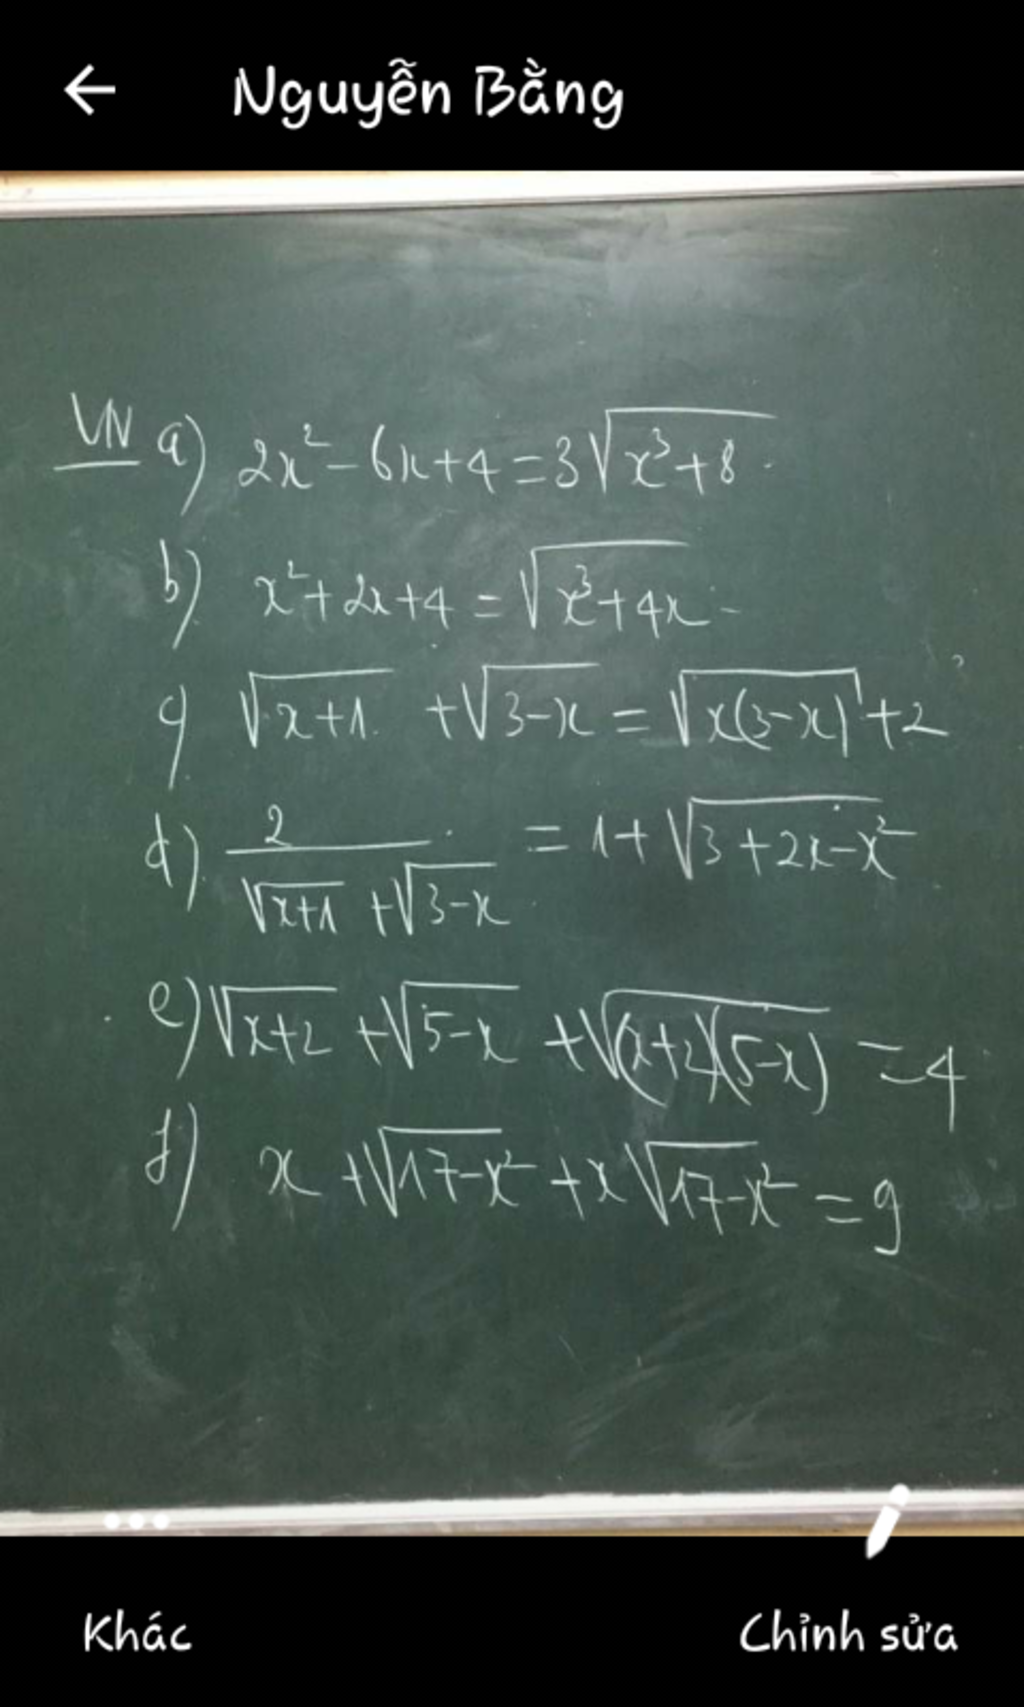 Nguyễn Bằng
VN a) 2x² - 6x + 4 = 3√(x³ + 8)
b) x² + 2x + 4 = √(x³ + 4x)
c) √(x+1) + √(3-x) = √(x(3-x)) + 2
d) 2/(√(x+1) + √(3-x)) = 1 + √(3 + 2x - x²)
e) √(x+2) + √(5-x) + √((x+2)(5-x)) = 4
f) x + √(17-x²) + x√(17-x²) = 9
Khác
Chỉnh sửa